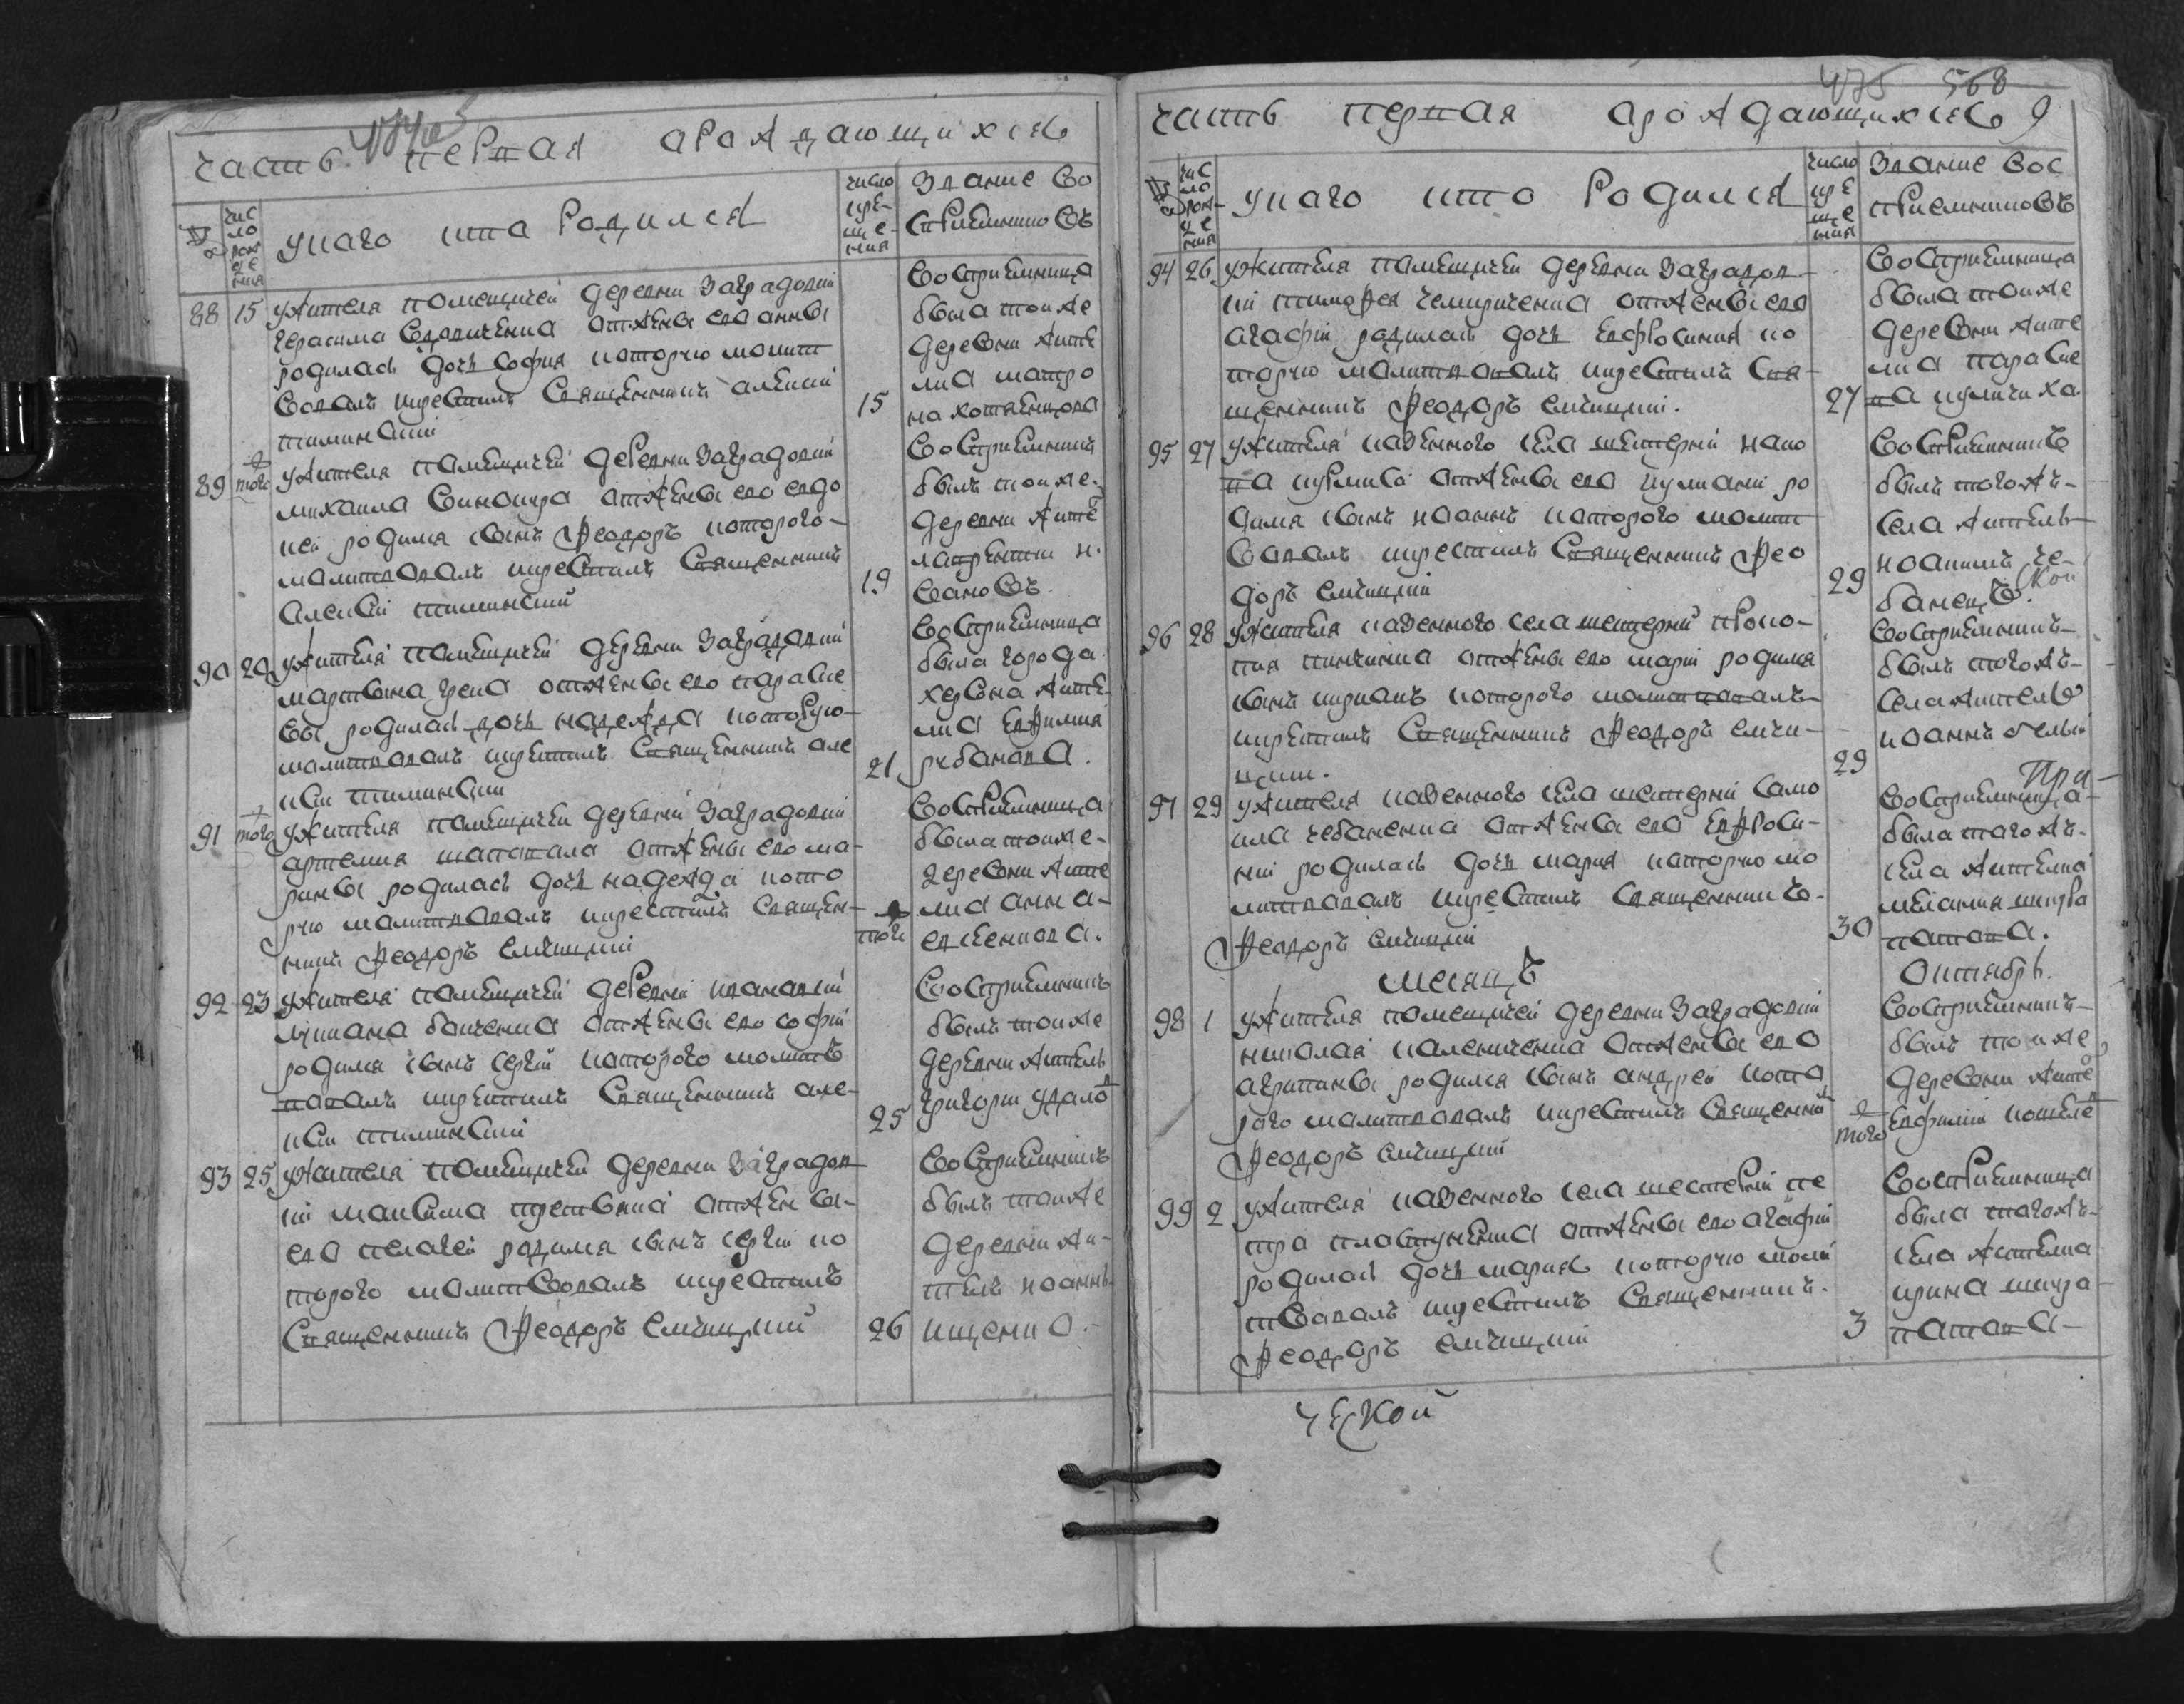 часть первая араждающихсь
№
число рождения
унаго кто родился
число креще-
ния
Звание во
сприемниковъ
88 15 ужителя помещичей деревни Заградовки
герасима Вдовиченка отжены его анны
родилась дочь София которую молит
вовалъ икрестилъ Священникъ алексий
тилинский
15
восприемница
была тойже
деревни жите
лка матро
на
89 того ужителя помещичей деревни Заградовки
михаила Винокура отжены его евдо
кеи родился сынъ Феодоръ которого
молитвовалъ икрестилъ Священникъ
алексий тилинский
19
восприемникъ
былъ тойже
деревни жите
лаврентий и
вановъ
90 20 ужителя помещичей деревни Заградовки
мартына грека отжены его параске
вы родилась дочь надежда которую
молитвовалъ икрестилъ Священникъ але
ксий тилинский
21
восприемница
была города
херсона жите
лка Евфимия
рибакова.
91 того ужителя помещичей деревни Заградовки
артемия шаповала отжены его ма-
рины родилась дочь надежда кото
рую молитвовалъ икрестилъ Священ-
никъ Феодоръ Елчицкий
того
восприемница
была тойже
деревни жите
лка анна
евсеикова.
92 23 ужителя помещичей деревни ивановки
лукиана бойченка отжены его софии
родился сынъ сергий которого молит
вовалъ икрестилъ Священникъ але-
ксий тилинский
25
восприемникъ
былъ тойже
деревни житель
григорий удало
93 25 ужителя помещичей деревни Заградов
ки максима третяка отжены
его пелагеи родился сынъ сергий ко
торого молитвовалъ икрестилъ
Священникъ Феодоръ Елчицкий
26
восприемникъ
былъ тойже
деревни жи-
тель иоаннъ
ищенко.
475 568
часть первая араждающихсь 9
№
число рождения
унаго кто родился
число крещения
Звание вос
приемниковъ
94 26 ужителя помещичей деревни Заградов
ки тимофея чемириченка отжены его
агафии родилась дочь Евфросиния ко
торую молитвовалъ икрестилъ Свя-
щенникъ Феодоръ Елчицкий.
27
восприемница
была тойже
деревни жите
лка параске
ва куличиха.
95 27 ужителя казенного села шестерни
отжены его иулиании ро
дился сынъ иоаннъ которого молит
вовалъ икрестилъ Священникъ Фео
доръ Елчицкий
29
восприемникъ
былъ тогожъ
села житель
иоаникъ че-
банецъ. Кои
96 28 ужителя казенного села шестерни Проко-
пия отжены его марии родился
сынъ кириакъ которого молитвовалъ
икрестилъ Священникъ Феодоръ Елчи-
цкий.
29
восприемникъ
былъ тогожъ
села житель
иоаннъ белый
При
97 29 ужителя казенного села шестерни Само
ила чебаненка отжены его Евфроси-
нии родилась дочь мария которую мо
литвовалъ икрестилъ Священникъ
Феодоръ Елчицкий
30
восприемница
была тогожъ
села жителка
мелания шкура
патова.
месяцъ Октябрь.
98 1 ужителя помещичей деревни Заградовки
николая каленниченка отжены его
агрипины родился сынъ андрей кото
рого молитвовалъ икрестилъ Священни
Феодоръ Елчицкий
того
восприемникъ
былъ тойже
деревни жите
Евфимий кошеле
99 2 ужителя казенного села шестерни пе
тра пластуненка отжены его агафии
родилась дочь мария которую моли
твовалъ икрестилъ Священникъ
Феодоръ Елчицкий
3
восприемница
была тогожъ
села жителка
ирина шкура
патова
ческой